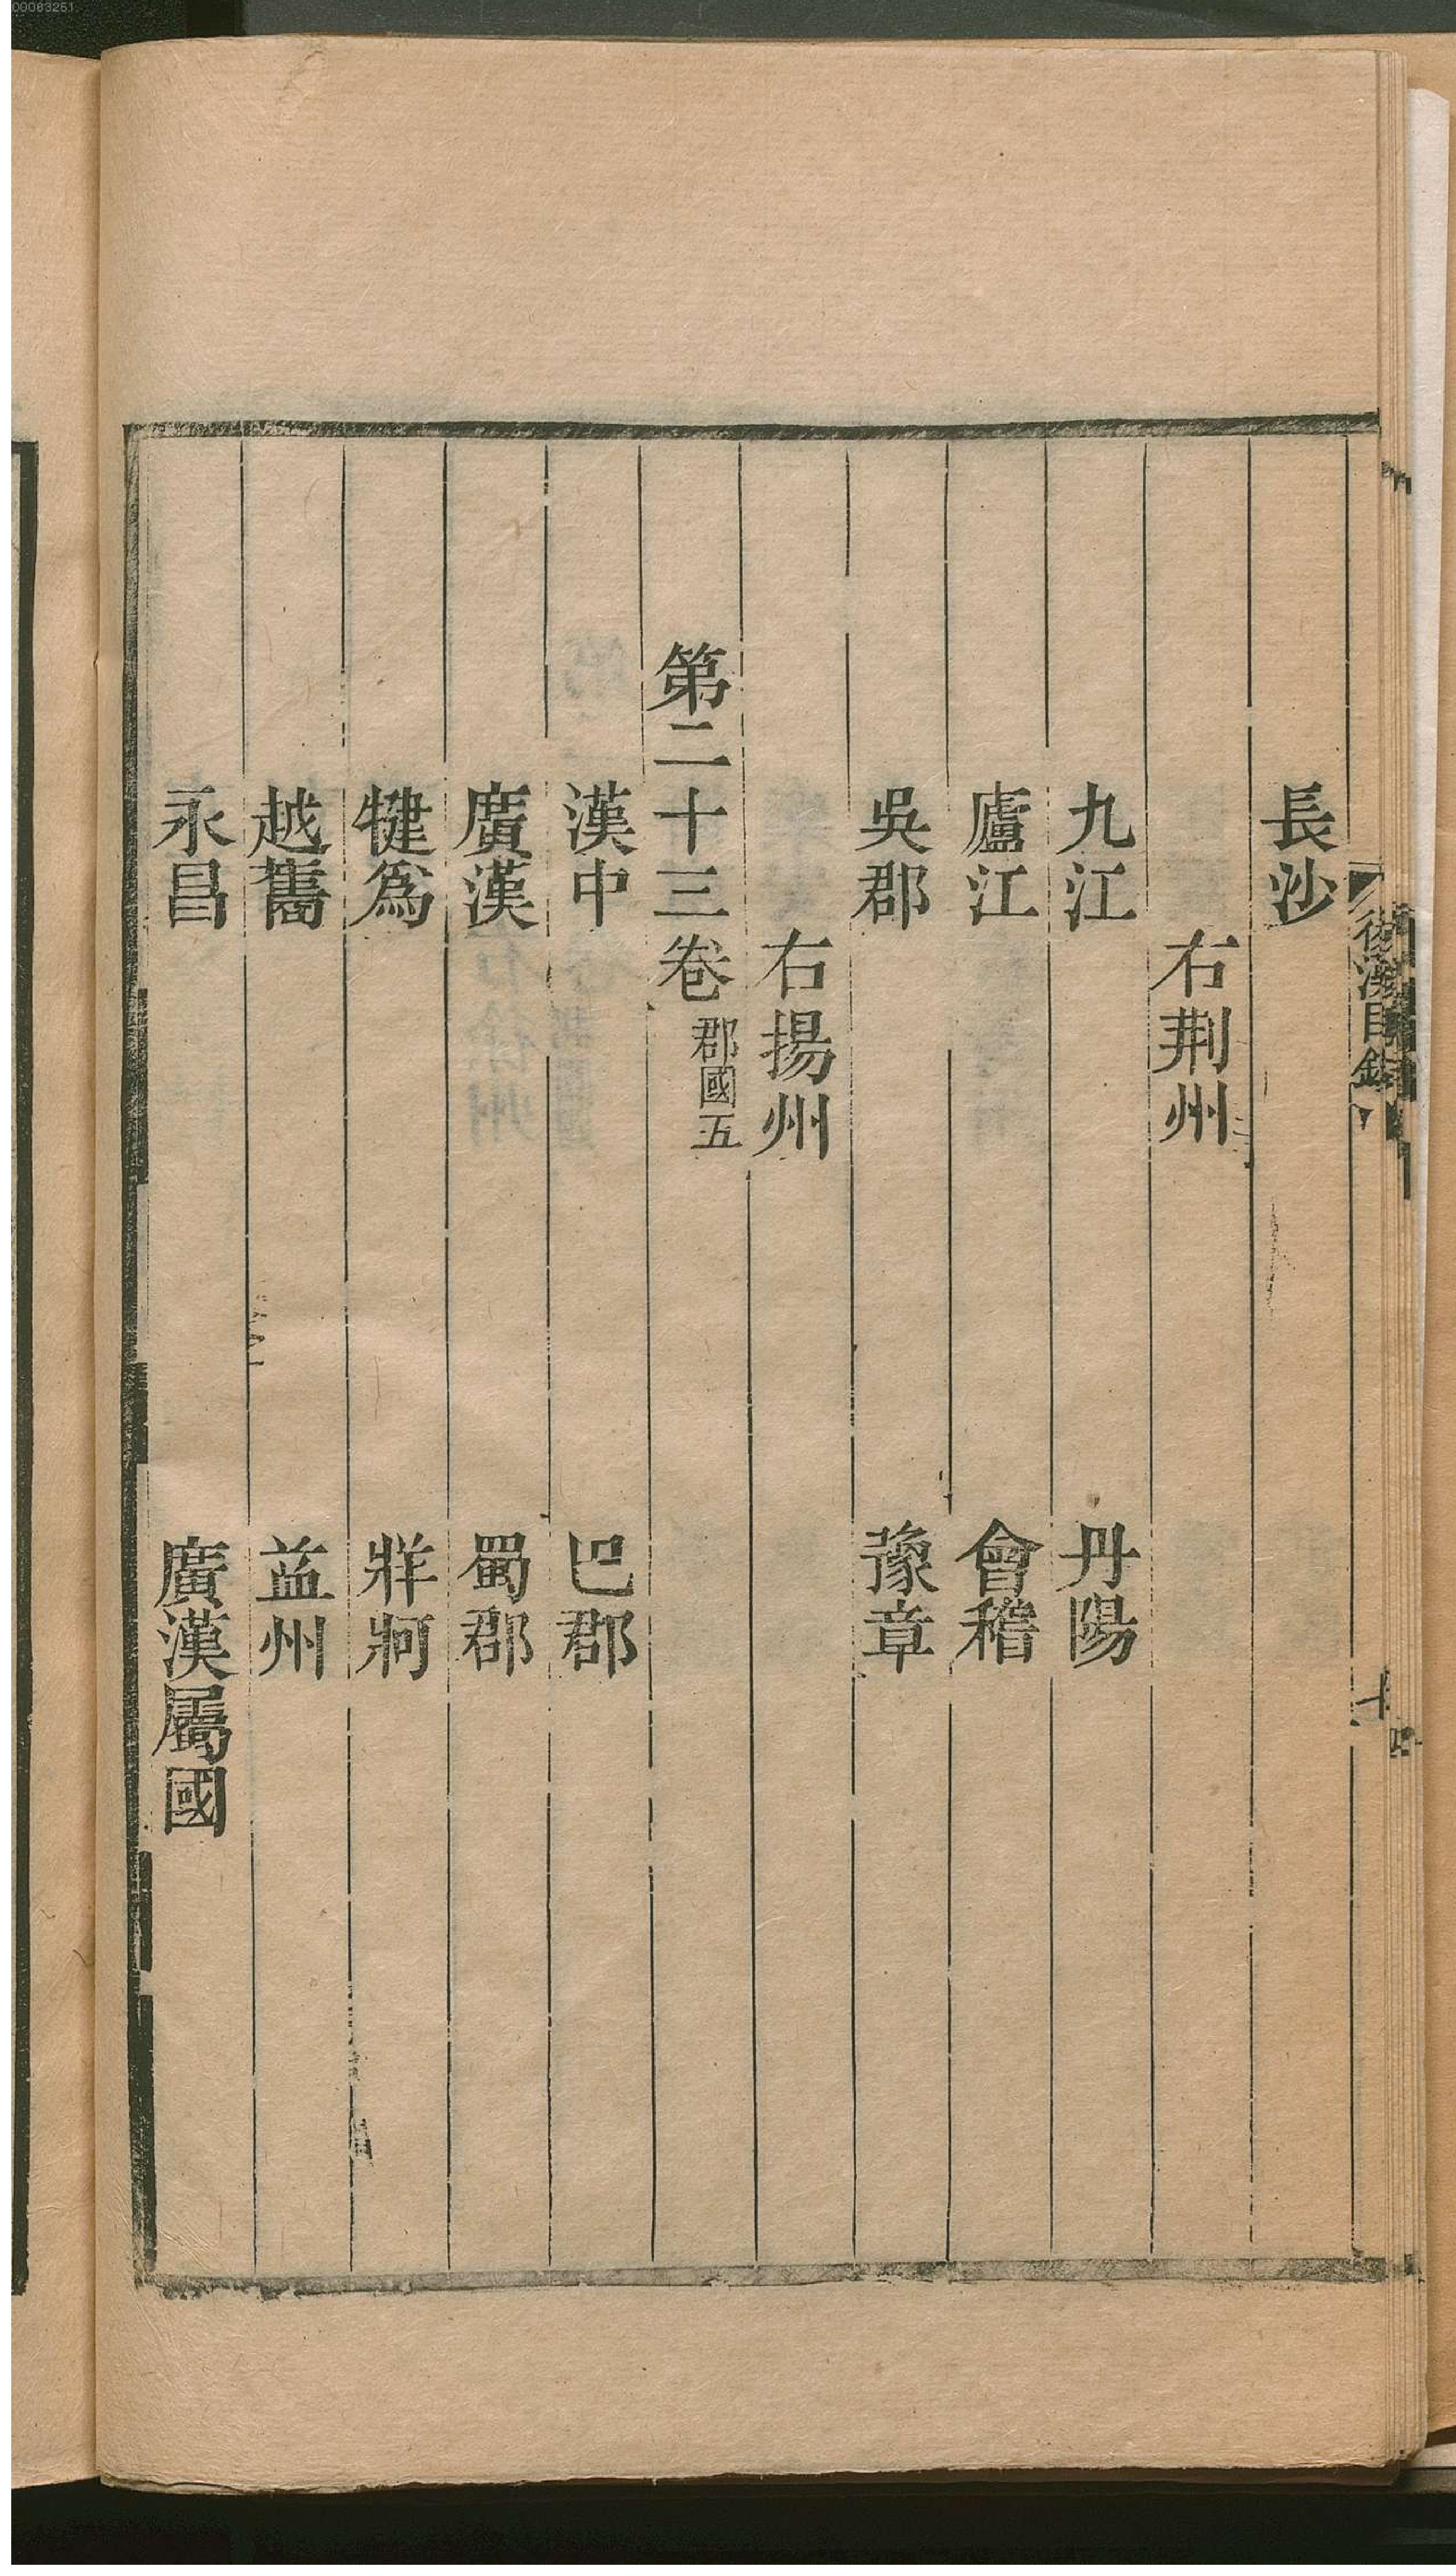 00083251
後漢目錄
十四
長沙
右荆州
九江 丹陽
廬江 會稽
吳郡 豫章
右揚州
第二十三卷 郡國五
漢中 巴郡
廣漢 蜀郡
犍爲 牂牁
越巂 益州
永昌 廣漢屬國